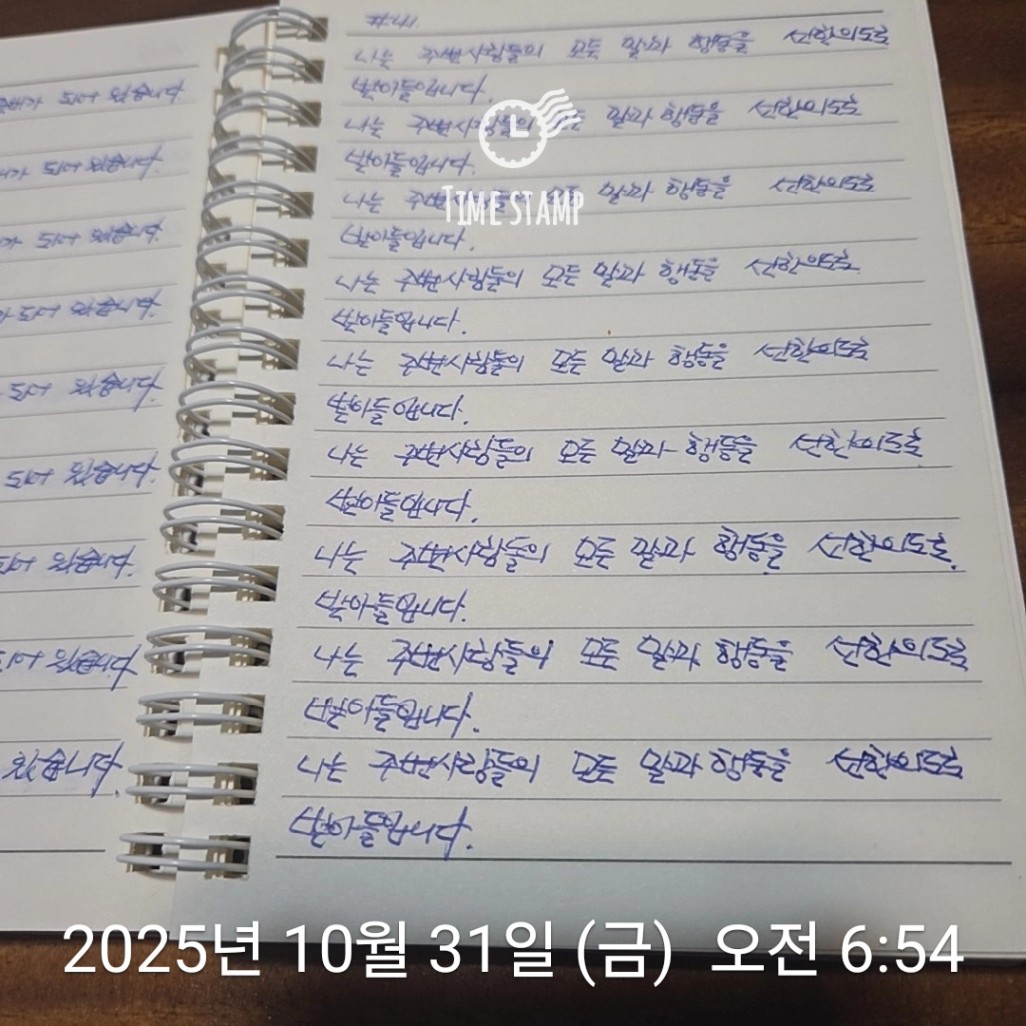 #41
나는 주변사람들의 모든 말과 행동을 선한의도로
받아들입니다.
나는 주변사람들의 모든 말과 행동을 선한의도로
받아들입니다.
나는 주변사람들의 모든 말과 행동을 선한의도로
받아들입니다.
나는 주변사람들의 모든 말과 행동을 선한의도로
받아들입니다.
나는 주변사람들의 모든 말과 행동을 선한의도로
받아들입니다.
나는 주변사람들의 모든 말과 행동을 선한의도로
받아들입니다.
나는 주변사람들의 모든 말과 행동을 선한의도로
받아들입니다.
나는 주변사람들의 모든 말과 행동을 선한의도로
받아들입니다.
나는 주변사람들의 모든 말과 행동을 선한의도로
받아들입니다.
되어 있습니다.
되어 있습니다.
되어 있습니다.
되어 있습니다.
되어 있습니다.
되어 있습니다.
되어 있습니다.
되어 있습니다.
있습니다.
TIME STAMP
2025년 10월 31일 (금) 오전 6:54